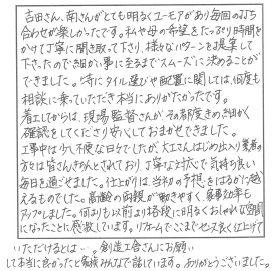 吉田さん、南さんがとても明るくユーモアがあり毎回の打ち
合わせが楽しかったです。私や母の希望をたっぷり時間を
かけて丁寧に聞き取って下さり、様々なパターンを提案して
下さったので細かい事に至るまでスムーズに決めることが
できました。特にタイル選びや配置に関しては、何度も
相談に乗っていただき本当にありがたかったです。
着工してからは、現場監督さんが、その都度きめ細かく
確認をしてくださり安心しておまかせできました。
工事中は少し不便な日々でしたが、大工さんはじめ出入り業者の
方々は皆さんきちんとされており、丁寧な対応で気持ち良い
毎日を過ごせました。仕上がりは、当初の予想をはるかに越
えるものでした。高齢の両親が動きやすく、家事効率も
アップしました。何よりも以前より格段に明るくおしゃれな空間
になったことに感激しています。リフォームでここまでセンス良く仕上げて
いただけるとは…。創造工舎さんにお願い
して本当に良かったと家族みんなで話しています。ありがとうございました。